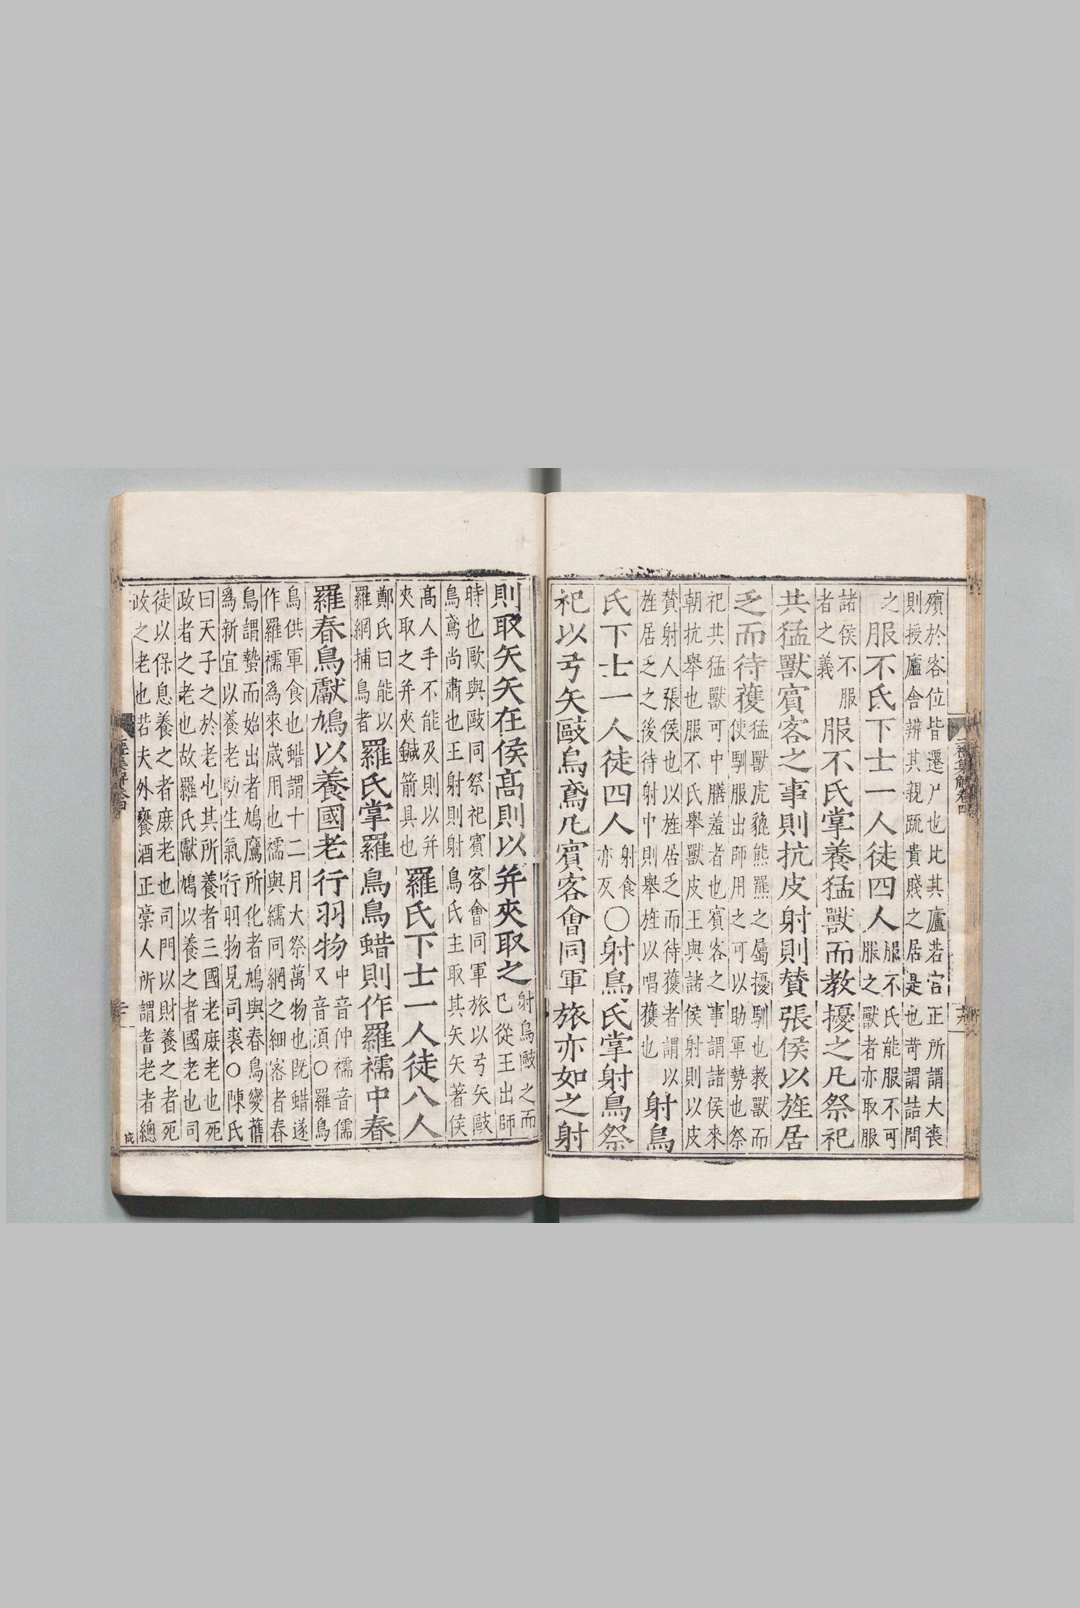 殯於客位皆遷尸也比其廬若宫正所謂大喪
則授廬舍辨其親疏貴賤之居是也苛謂詰問
之
服不氏下士一人徒四人
服不氏能服不可
服之獸者亦取服
諸侯不服
者之義
服不氏掌養猛獸而教擾之凡祭祀
共猛獸賓客之事則抗皮射則贊張侯以旌居
乏而待獲
猛獸虎貔熊羆之屬擾馴也教獸而
使馴服出師用之可以助軍勢也祭
祀共猛獸可中膳羞者也賓客之事謂諸侯來
朝抗舉也服不氏舉獸皮王與諸侯射則以皮
贊射人張侯也以旌居乏而待獲者謂以
旌居乏之後待射中則舉旌以唱獲也
射鳥
氏下士一人徒四人
射食
亦反
○射鳥氏掌射鳥祭
祀以弓矢敺烏鳶凡賓客會同軍旅亦如之射
則取矢矢在侯髙則以并夾取之
射鳥敺之而
已從王出師
時也歐與敺同祭祀賓客會同軍旅以弓矢敺
烏鳶尚肅也王射則射鳥氏主取其矢矢著侯
髙人手不能及則以并
夾取之并夾鍼箭具也
羅氏下士一人徒八人
鄭氏曰能以
羅網捕鳥者
羅氏掌羅烏鳥蜡則作羅襦中春
羅春鳥獻鳩以養國老行羽物
中音仲襦音儒
又音須○羅鳥
鳥供軍食也蜡謂十二月大祭萬物也既蜡遂
作羅襦爲來歲用也襦與繻同網之細密者春
鳥謂蟄而始出者鳩鷹所化者鳩與春鳥變舊
爲新宜以養老助生氣行羽物見司裘○陳氏
曰天子之於老也其所養者三國老庶老也死
政者之老也故羅氏獻鳩以養之者國老也司
徒以保息養之者庶老也司門以財養之者死
政之老也若夫外饔酒正槀人所謂耆老者總